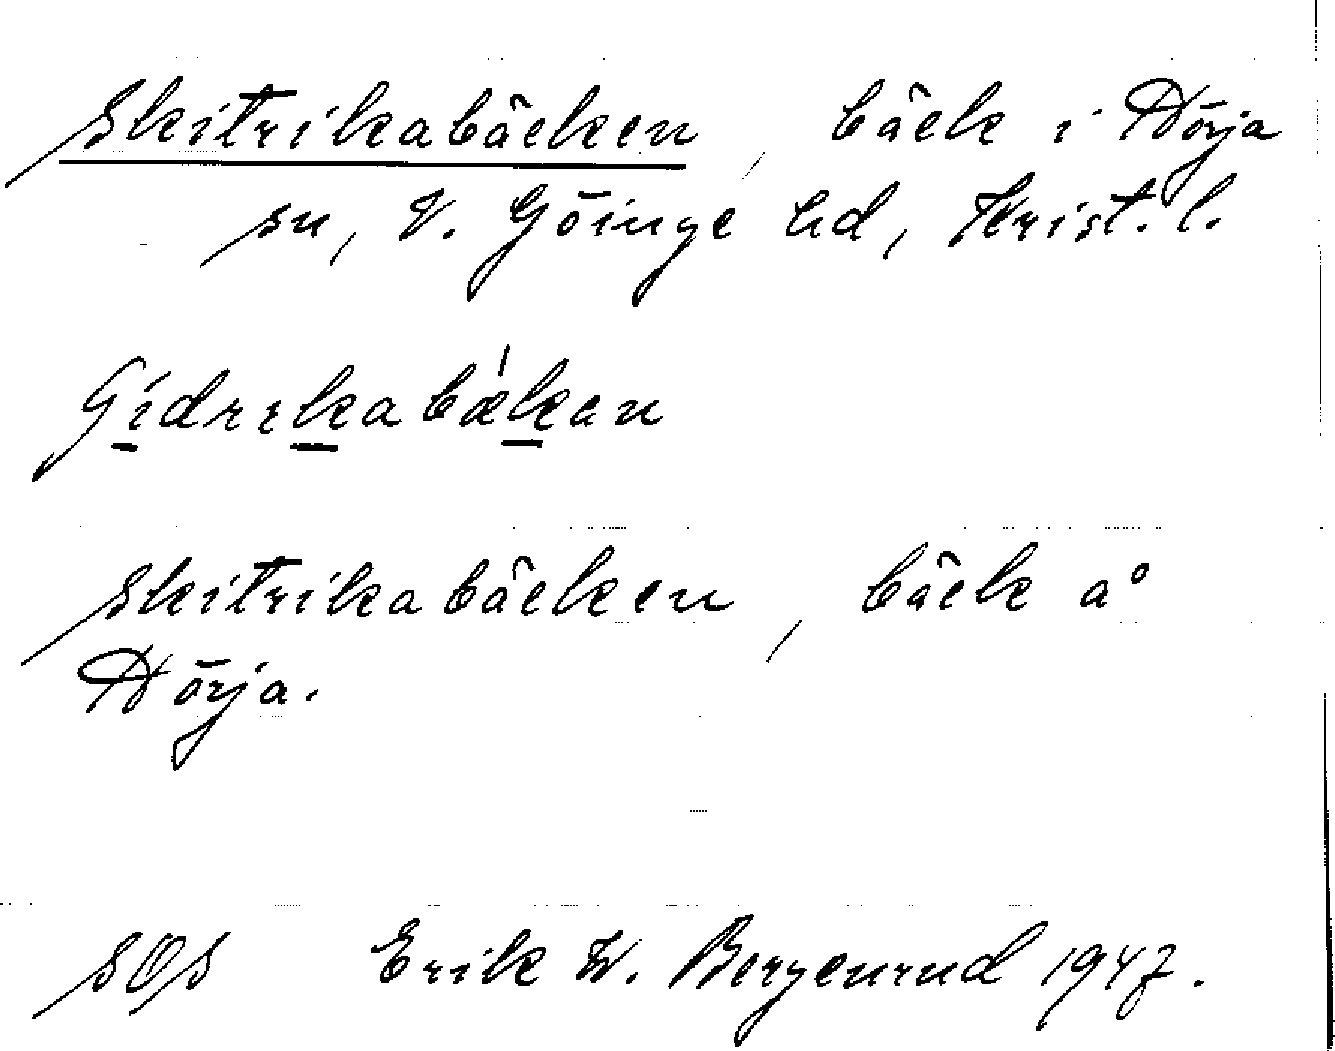 Skitrikabäcken, bäck i Nörja
sn, V. Göinge hd, Krist. l.
Gidrikabækan
Skitrikabäcken, bäck å
Nörja.
SOS Erik W. Bergenrud 1947.